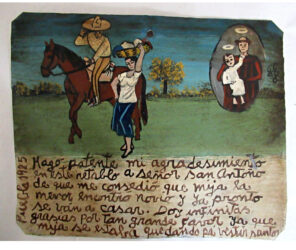 Puebla 1925
Hago patente mi agradesimiento
en este retablo a señor san Antonio
de que me consedio que mija la
menor encontro novio y ya pronto
se van a casar. Doy infinitas
grasias por tan grande favor ya que
mija se estaba quedando pa vestir santos